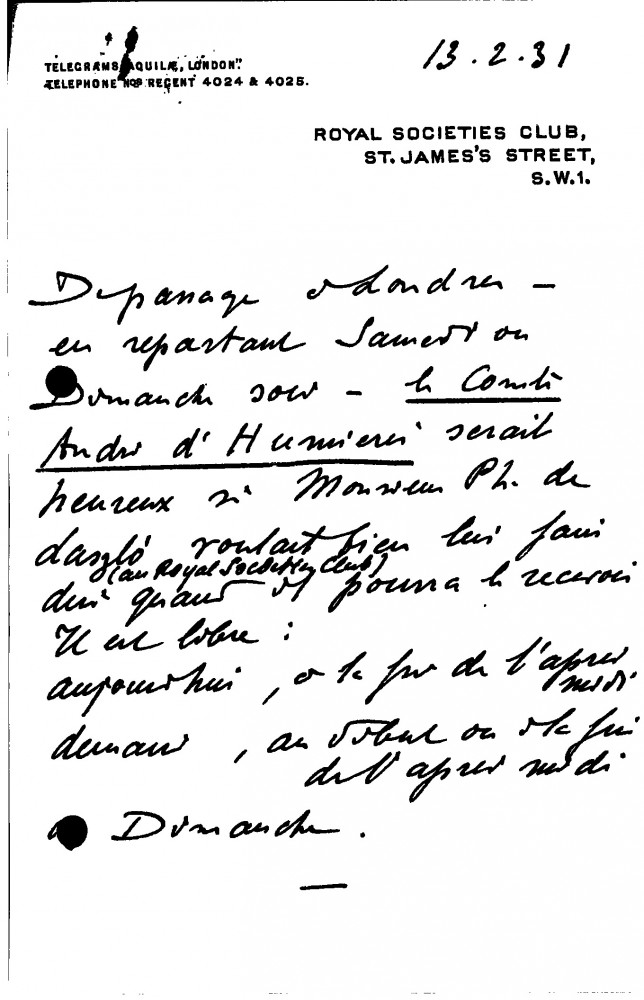 TELEGRAMS "AQUILÆ, LONDON."
TELEPHONE Nos REGENT 4024 & 4025.
13.2.31
ROYAL SOCIETIES CLUB,
ST. JAMES'S STREET,
S.W.1.
De passage à Londres –
en repartant Samedi ou
Dimanche soir – le Comte
André d'Humières serait
heureux si Monsieur Ph. de
László voulait bien lui faire
(au Royal Societies Club)
dire quand il pourra le recevoir
Il est libre :
aujourd'hui, à la fin de l'après
midi
demain, au début ou à la fin
de l'après midi
Dimanche.